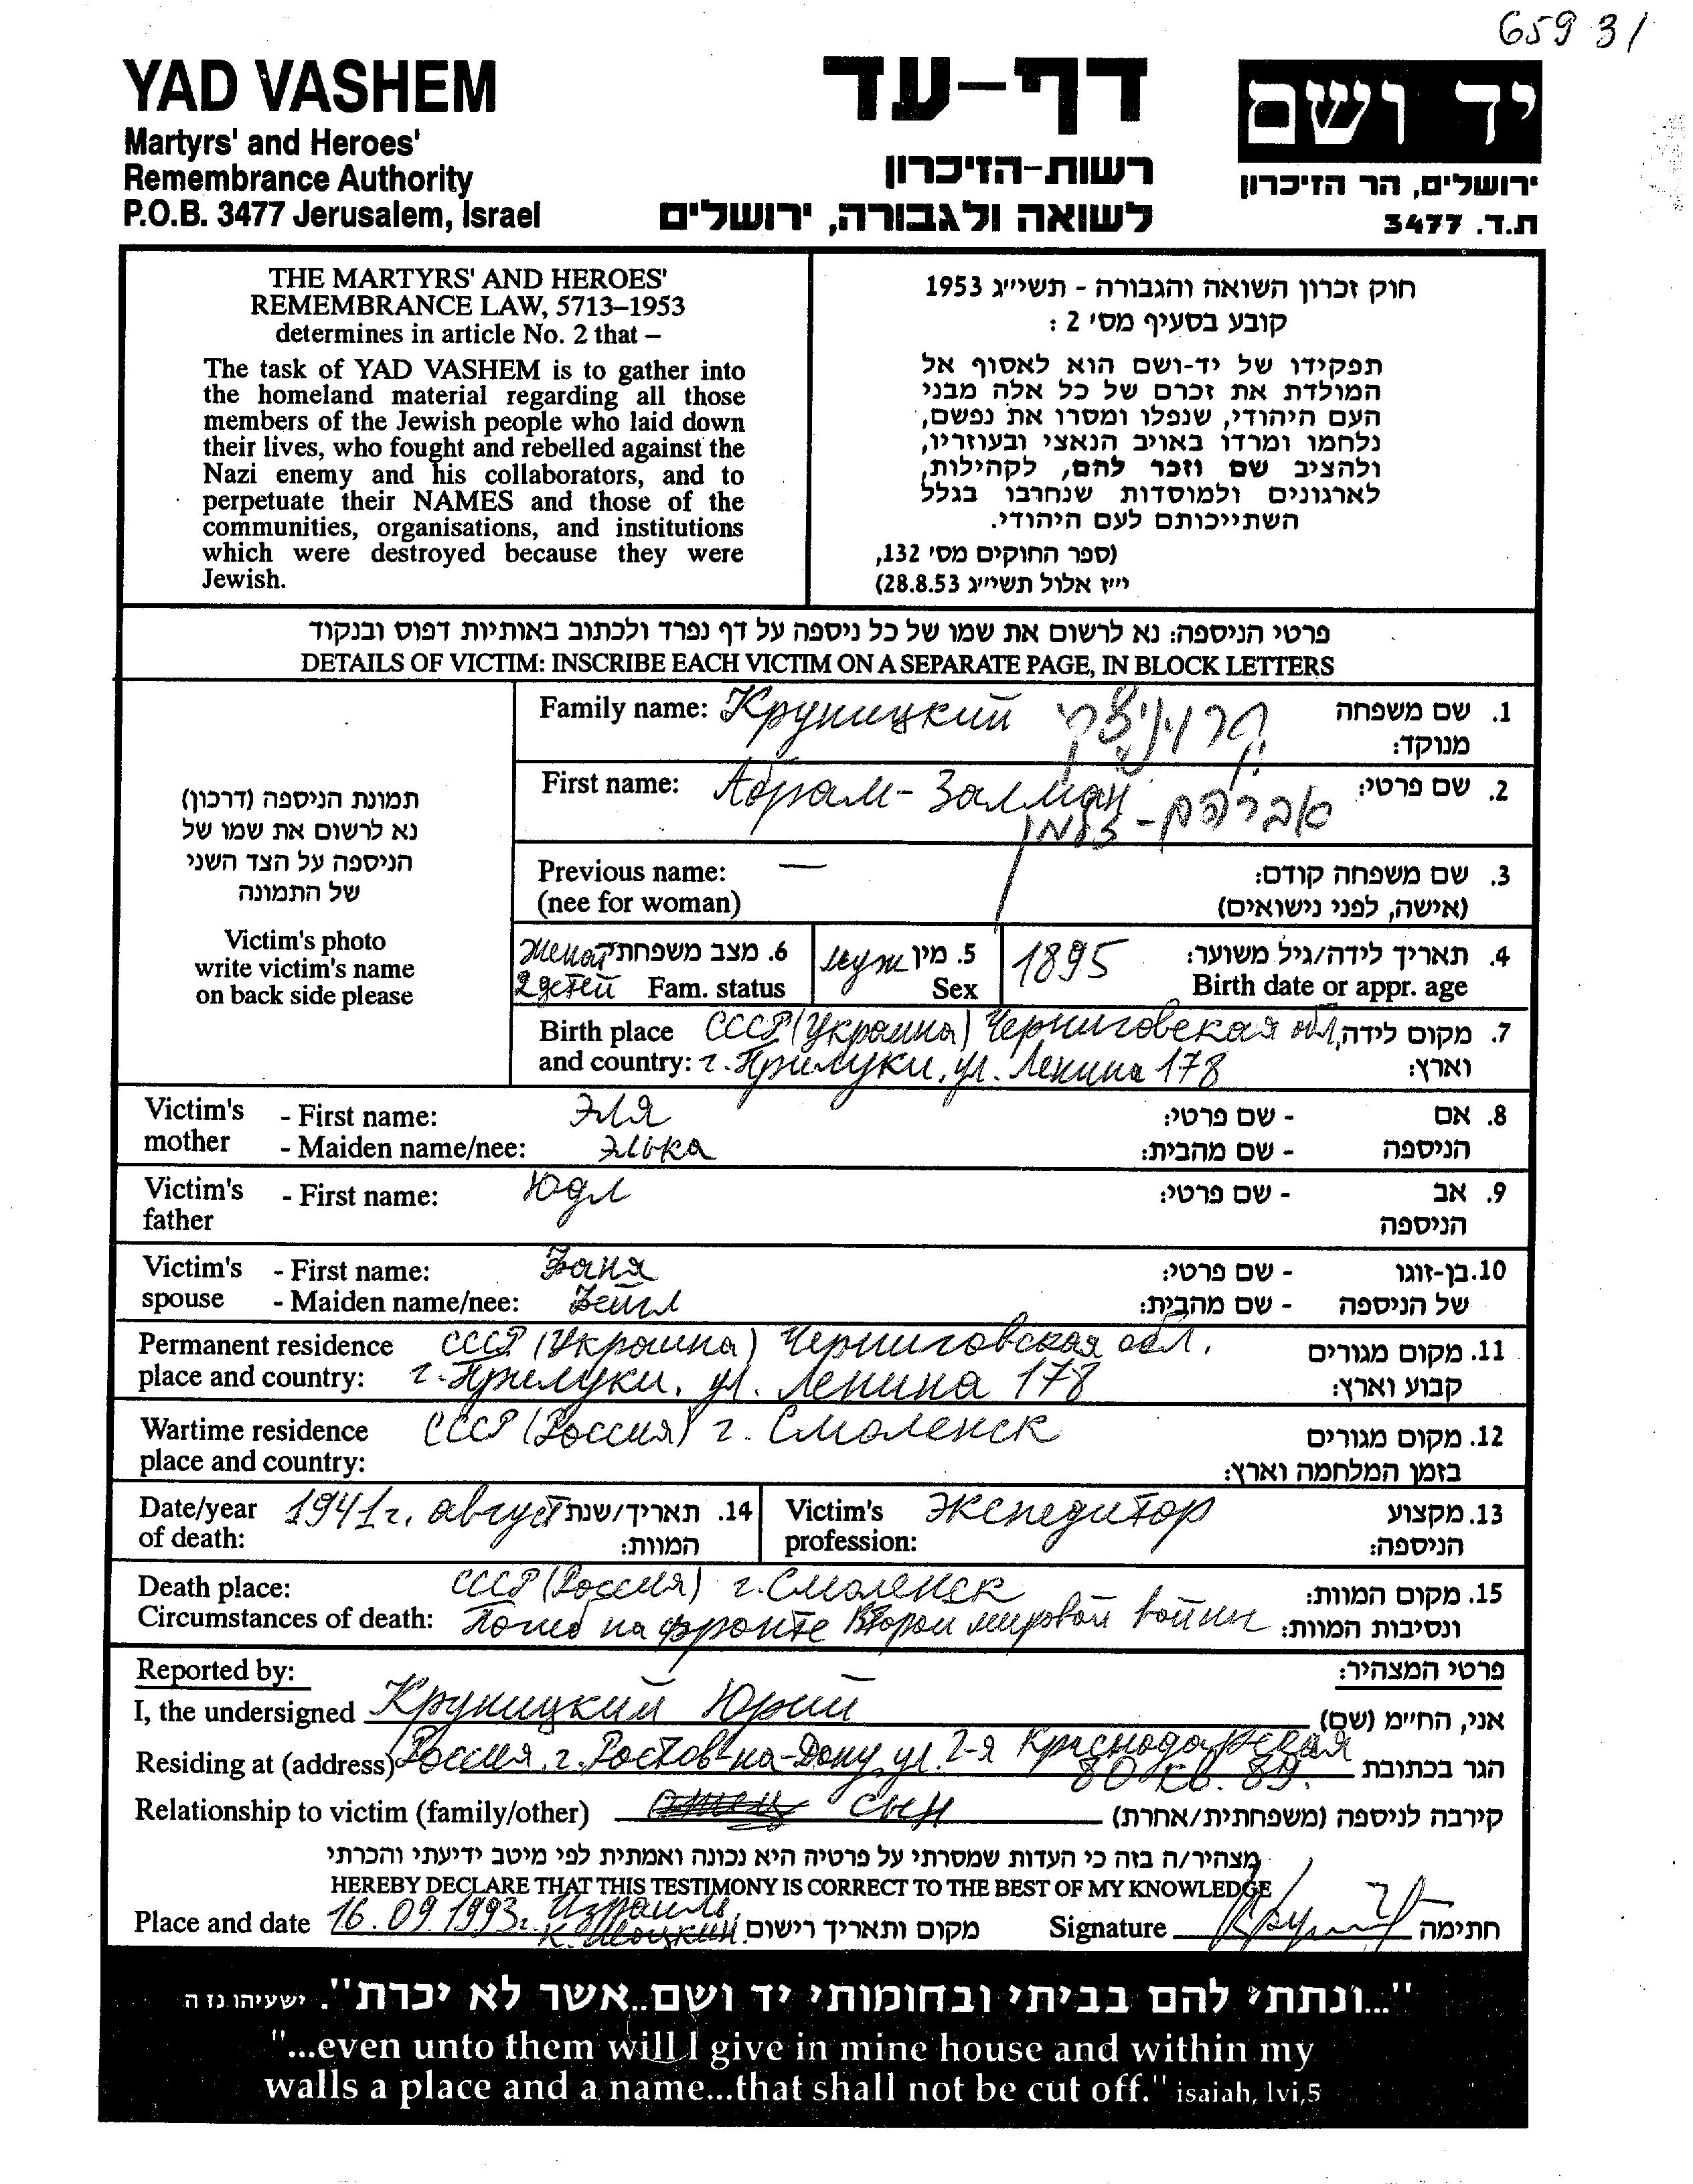 65931
YAD VASHEM
Martyrs' and Heroes'
Remembrance Authority
P.O.B. 3477 Jerusalem, Israel
דף-עד
רשות-הזיכרון
לשואה ולגבורה, ירושלים
יד ושם
ירושלים, הר הזיכרון
ת.ד. 3477
THE MARTYRS' AND HEROES'
REMEMBRANCE LAW, 5713–1953
determines in article No. 2 that –
The task of YAD VASHEM is to gather into
the homeland material regarding all those
members of the Jewish people who laid down
their lives, who fought and rebelled against the
Nazi enemy and his collaborators, and to
perpetuate their NAMES and those of the
communities, organisations, and institutions
which were destroyed because they were
Jewish.
חוק זכרון השואה והגבורה - תשי״ג 1953
קובע בסעיף מס׳ 2 :
תפקידו של יד-ושם הוא לאסוף אל
המולדת את זכרם של כל אלה מבני
העם היהודי, שנפלו ומסרו את נפשם,
נלחמו ומרדו באויב הנאצי ובעוזריו,
ולהציב שם וזכר להם, לקהילות,
לארגונים ולמוסדות שנחרבו בגלל
השתייכותם לעם היהודי.
(ספר החוקים מס׳ 132,
י״ז אלול תשי״ג 28.8.53)
פרטי הניספה: נא לרשום את שמו של כל ניספה על דף נפרד ולכתוב באותיות דפוס ובנקוד
DETAILS OF VICTIM: INSCRIBE EACH VICTIM ON A SEPARATE PAGE, IN BLOCK LETTERS
תמונת הניספה (דרכון)
נא לרשום את שמו של
הניספה על הצד השני
של התמונה
Victim's photo
write victim's name
on back side please
Family name: Круницкий קרוניצקי 1. שם משפחה
מנוקד:
First name: Абрам-Залман אברהם- 2. שם פרטי:
זלמן
Previous name: — 3. שם משפחה קודם:
(nee for woman) (אישה, לפני נישואים)
женат 6. מצב משפחתי муж 5. מין 1895 4. תאריך לידה/גיל משוער:
2 детей Fam. status Sex Birth date or appr. age
Birth place СССР (Украина) Черниговская обл, 7. מקום לידה
and country: г. Прилуки, ул. Ленина 178 וארץ:
Victim's - First name: Эля - שם פרטי: 8. אם
mother - Maiden name/nee: Элька - שם מהבית: הניספה
Victim's - First name: Юдл - שם פרטי: 9. אב
father הניספה
Victim's - First name: Фаня - שם פרטי: 10. בן-זוגו
spouse - Maiden name/nee: - שם מהבית: של הניספה
Permanent residence СССР (Украина) Черниговская обл. 11. מקום מגורים
place and country: г. Прилуки, ул. Ленина 178 קבוע וארץ:
Wartime residence СССР (Россия) г. Смоленск 12. מקום מגורים
place and country: בזמן המלחמה וארץ:
Date/year 1941г. август 14. תאריך/שנת Victim's экспедитор 13. מקצוע
of death: המוות: profession: הניספה:
Death place: СССР (Россия) г. Смоленск 15. מקום המוות:
Circumstances of death: Погиб на фронте Второй мировой войны ונסיבות המוות:
Reported by: פרטי המצהיר:
I, the undersigned Круницкий Юрий אני, החי״מ (שם)
Residing at (address) Россия, г. Ростов-на-Дону, ул. 2-я Краснодарская הגר בכתובת
80 кв. 89.
Relationship to victim (family/other) сын קירבה לניספה (משפחתית/אחרת)
מצהיר/ה בזה כי העדות שמסרתי על פרטיה היא נכונה ואמתית לפי מיטב ידיעתי והכרתי
HEREBY DECLARE THAT THIS TESTIMONY IS CORRECT TO THE BEST OF MY KNOWLEDGE
Place and date 16.09.1993г. Израиль מקום ותאריך רישום Signature חתימה
"...ונתתי להם בביתי ובחומותי יד ושם..אשר לא יכרת". ישעיהו נז ה
"...even unto them will I give in mine house and within my
walls a place and a name...that shall not be cut off." isaiah, lvi,5